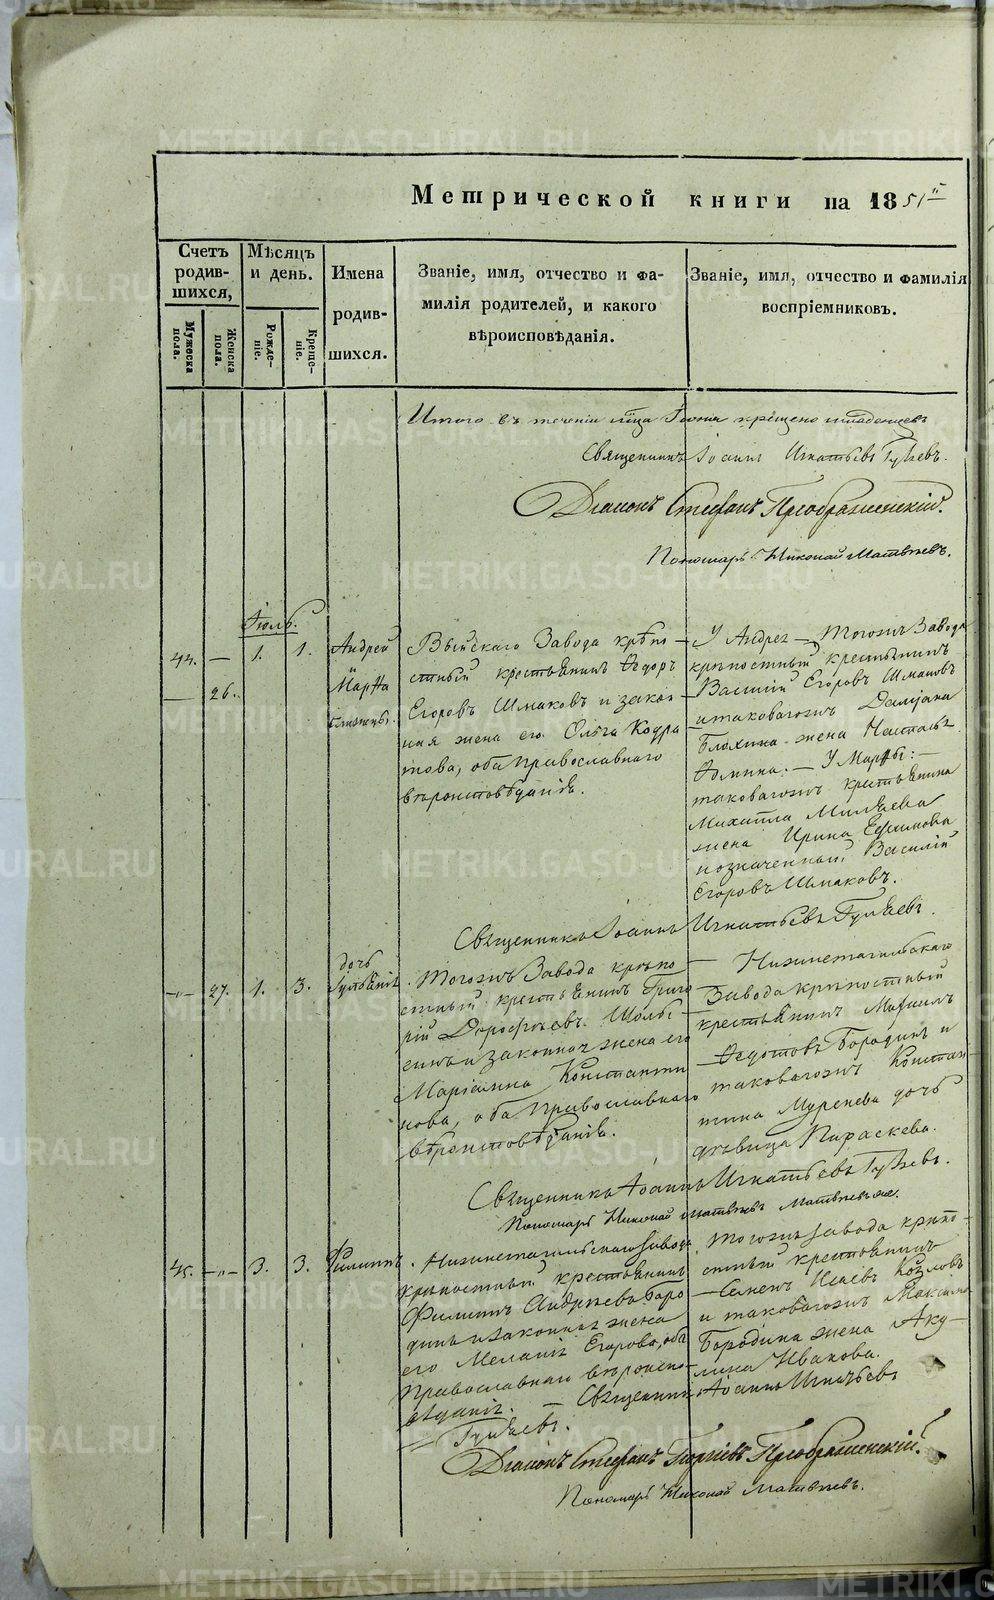 Метрической книги на 1851й
Счетъ родившихся,
Мѣсяцъ и день.
Имена родившихся.
Званіе, имя, отчество и фамилія родителей, и какого вѣроисповѣданія.
Званіе, имя, отчество и фамилія воспріемниковъ.
Мужеска пола.
Женска пола.
Рожденіе.
Крещеніе.
Итого въ теченіи мца Іюня крещено младенцевъ
Священникъ Іоаннъ Игнатьевъ Гуляевъ.
Діаконъ Стефанъ Преображенскій.
Пономарь Николай Матвѣевъ.
Іюль.
44. — 1. 1.
— 26.
Андрей
и
Марѳа
близнцы.
Выйскаго Завода крѣпо-
стный крестьянинъ Ѳедоръ
Егоровъ Шмаковъ и закон
ная жена его Ольга Кодра
това, оба православнаго
вѣроисповѣданія.
У Андрея — Тогожъ Завода
крѣпостный крестьянинъ
Василій Егоровъ Шмаковъ
и таковагожъ Даміана
Блохина жена Наталья
Ѳомина. — У Марѳы: —
таковагожъ крестьянина
Михаила Миляева
жена Ирина Ефимова
и означенный Василій
Егоровъ Шмаковъ.
Священникъ Іоаннъ Игнатьевъ Гуляевъ.
—"— 27. 1. 3.
дочь
Іуліанія.
Тогожъ Завода крѣпо
стный крестьянинъ Григо
рій Дороѳѣевъ
и законная жена его
Маріамна Константи
нова, оба православнаго
вѣроисповѣданія.
— Нижнетагильскаго
Завода крѣпостный
крестьянинъ
Ѳедотовъ Бородинъ и
таковагожъ Констан
тина Муренева дочь
дѣвица Параскева.
Священникъ Іоаннъ Игнатьевъ Гуляевъ.
Пономарь Николай Матвѣевъ
45. —"— 3. 3.
Филиппъ.
Нижнетагильскаго Завода
крѣпостный крестьянинъ
Филиппъ Андрѣевъ Боро
динъ и законная жена
его Меланія Егорова, оба
Православнаго вѣроиспо-
вѣданія. —
Тогожъ Завода крѣпо-
стный крестьянинъ
— Семенъ Исаевъ Козловъ
и таковагожъ Максима
Бородина жена Аку-
лина Иванова.
Священникъ Іоаннъ Игнатьевъ
Гуляевъ.
Діаконъ Стефанъ Георгіевъ Преображенскій.
Пономарь Николай Матвѣевъ.
METRIKI.GASO-URAL.RU